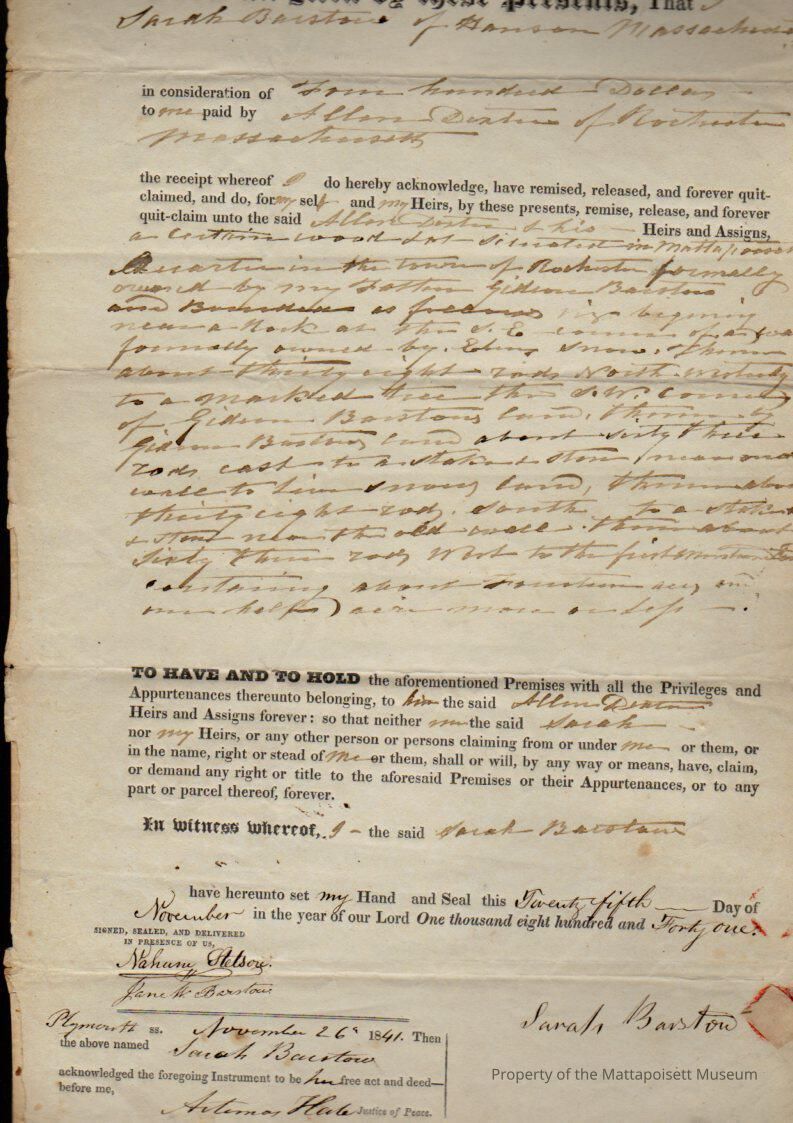 these presents, That I
Sarah Barstow of Hanson Massachuse
in consideration of Four hundred Dollars
to me paid by Allen Dexter of Rochester
Massachusetts
the receipt whereof I do hereby acknowledge, have remised, released, and forever quit-
claimed, and do, for my self and my Heirs, by these presents, remise, release, and forever
quit-claim unto the said Allen Dexter & his Heirs and Assigns,
a certain wood Lot situated in Mattapoisett
Quarter in the town of Rochester formally
owned by my Father Gideon Barstow
and Bounded as follows viz begining
near a Rock at the S. E. corner of a
formally owned by Snow, thence
about thirty eight rods North westerly
to a marked tree the S.W. corner
of Gideon Barstows land, thence by
Gideon Barstows land about sixty three
rods east to a stake & stone near
wall to Snows land, thence abou
thirty eight rods South to a stake
& stone near the old wall thence about
sixty three rods West to the first
containing about fourteen and
one half acre more or less
TO HAVE AND TO HOLD the aforementioned Premises with all the Privileges and
Appurtenances thereunto belonging, to him the said Allen Dexter
Heirs and Assigns forever: so that neither me the said Sarah
nor my Heirs, or any other person or persons claiming from or under me or them, or
in the name, right or stead of me or them, shall or will, by any way or means, have, claim,
or demand any right or title to the aforesaid Premises or their Appurtenances, or to any
part or parcel thereof, forever.
In witness whereof, I the said Sarah Barstow
have hereunto set my Hand and Seal this Twenty fifth Day of
November in the year of our Lord One thousand eight hundred and Forty one.
SIGNED, SEALED, AND DELIVERED
IN PRESENCE OF US,
Nahum Stetson.
Jane W Barstow
Sarah Barstow
Plymouth ss. November 26 1841. Then
the above named Sarah Barstow
acknowledged the foregoing Instrument to be her free act and deed—
before me,
Artemas Hale Justice of Peace.
Property of the Mattapoisett Museum